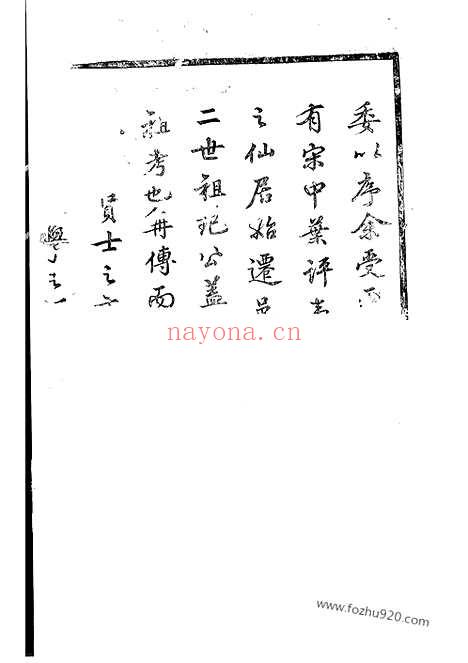 委以序余受
有宋中葉評
之仙居始遷
二世祖玘公蓋
祖考也再傳而
貢士之
學士
nayona.cn
www.fozhu920.com